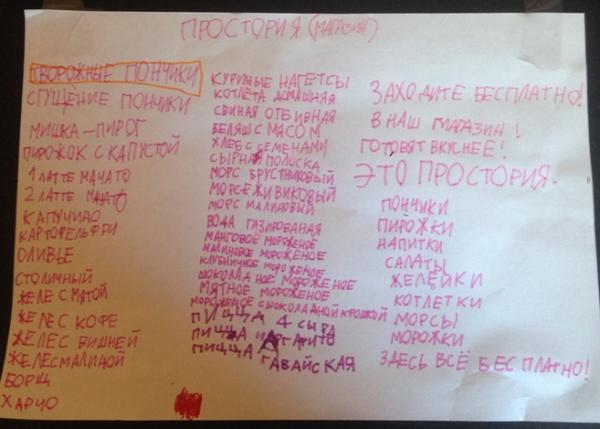 ПРОСТОРИЯ (МАГАЗИН)
ТВОРОЖНЫЕ ПОНЧИКИ
СГУЩЁНИЕ ПОНЧИКИ
МИШКА-ПИРОГ
ПИРОЖОК С КАПУСТОЙ
1 ЛАТТЕ МАЧАТО
2 ЛАТТЕ МАЧАТО
КАПУЧИНО
КАРТОФЕЛЬ ФРИ
ОЛИВЬЕ
СТОЛИЧНЫЙ
ЖЕЛЕ С МЯТОЙ
ЖЕЛЕС КОФЕ
ЖЕЛЕС ВИШНЕЙ
ЖЕЛЕСМАЛИНОЙ
БОРЩ
ХАРЧО
КУРИНЫЕ НАГЕТСЫ
КОТЛЕТА ДОМАШНЯЯ
СВИНАЯ ОТБИВНАЯ
БЕЛЯШ С МЯСОМ
ХЛЕБ С СЕМЕНАМИ
СЫРНАЯ ПОЛОСКА
МОРС БРУСТНИКОВЫЙ
МОРС ЕЖИВИКОВЫЙ
МОРС МАЛИНОВЫЙ
ВОДА ГАЗИРОВАНАЯ
МАНГОВОЕ МОРОЖЕНОЕ
МАЛИНОВОЕ МОРОЖЕНОЕ
КЛУБНИЧНОЕ МОРОЖЕНОЕ
ШОКОЛАДНОЕ МОРОЖЕНОЕ
МЯТНОЕ МОРОЖЕНОЕ
МОРОЖЕНОЕ СШОКОЛАДНОЙ КРОШКОЙ
ПИЦЦА 4 СЫРА
ПИЦЦА МАРГАРИТО
ПИЦЦА ГАВАЙСКАЯ
ЗАХОДИТЕ БЕСПЛАТНО!
В НАШ МАГАЗИН!
ГОТОВЯТ ВКУСНЕЕ!
ЭТО ПРОСТОРИЯ.
ПОНЧИКИ
ПИРОЖКИ
НАПИТКИ
САЛАТЫ
ЖЕЛЕЙКИ
КОТЛЕТКИ
МОРСЫ
МОРОЖКИ
ЗДЕСЬ ВСЁ БЕСПЛАТНО!